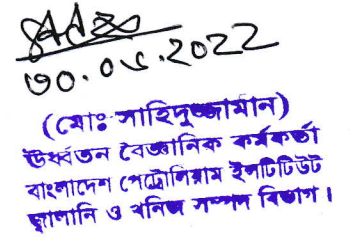 ৩০.০৫.2022
(মোঃ সাহিদুজ্জামান)
ঊর্ধ্বতন বৈজ্ঞানিক কর্মকর্তা
বাংলাদেশ পেট্রোলিয়াম ইনস্টিটিউট
জ্বালানি ও খনিজ সম্পদ বিভাগ।